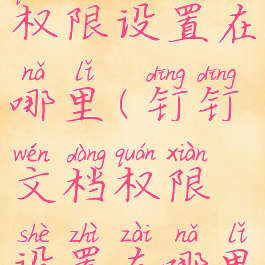 权限设置在
nǎ lǐ dīng dīng
哪里(钉钉
wén dàng quán xiàn
文档权限
shè zhì zài nǎ lǐ
设置在哪里